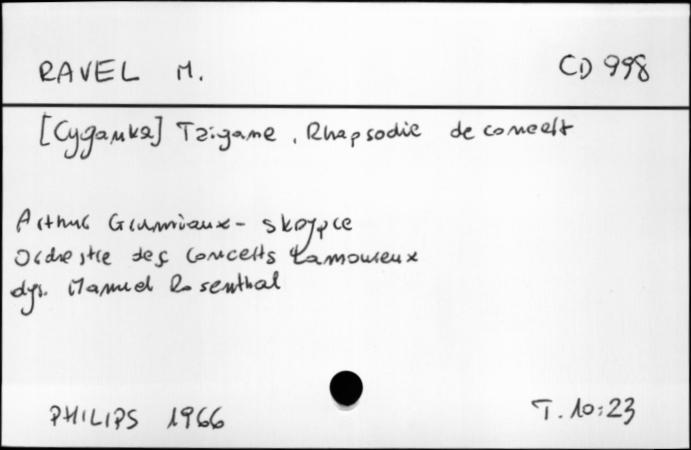 RAVEL M. CD 998
[Cyganka] Tzigane, Rhapsodie de concert
Arthur Grumiaux - skrzypce
Orchestre des Concerts Lamoureux
dyr. Manuel Rosenthal
PHILIPS 1966 T. 10:23